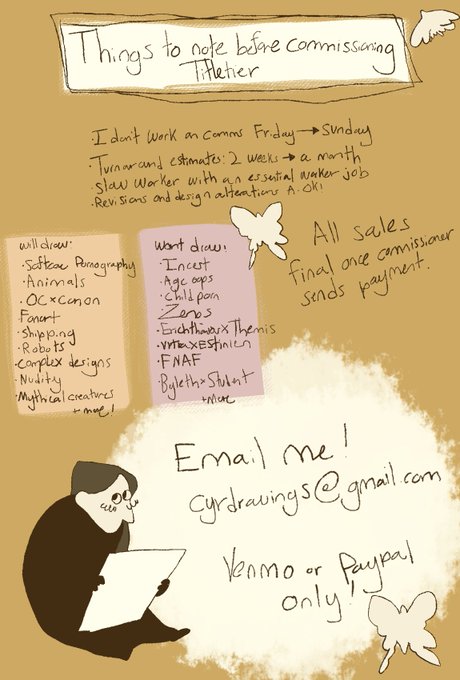 Things to note before commissioning
Titletier
• I don't work on comms Friday → Sunday
• Turnaround estimates: 2 weeks → a month
• slow worker with an essential worker job
• Revisions and design alterations A-OK!
All sales
final once commissioner
sends payment.
will draw:
• Softcore Pornography
• Animals
• OC x Canon
Fanart
• Shipping
• Robots
• complex designs
• Nudity
• Mythical creatures
+ more!
wont draw:
• Incest
• Age gaps
• Child porn
Zenos
• Erichthonios x Themis
x Estinien
• FNAF
• Byleth x Student
+ more
Email me!
cyrdrawings@gmail.com
Venmo or Paypal
only!